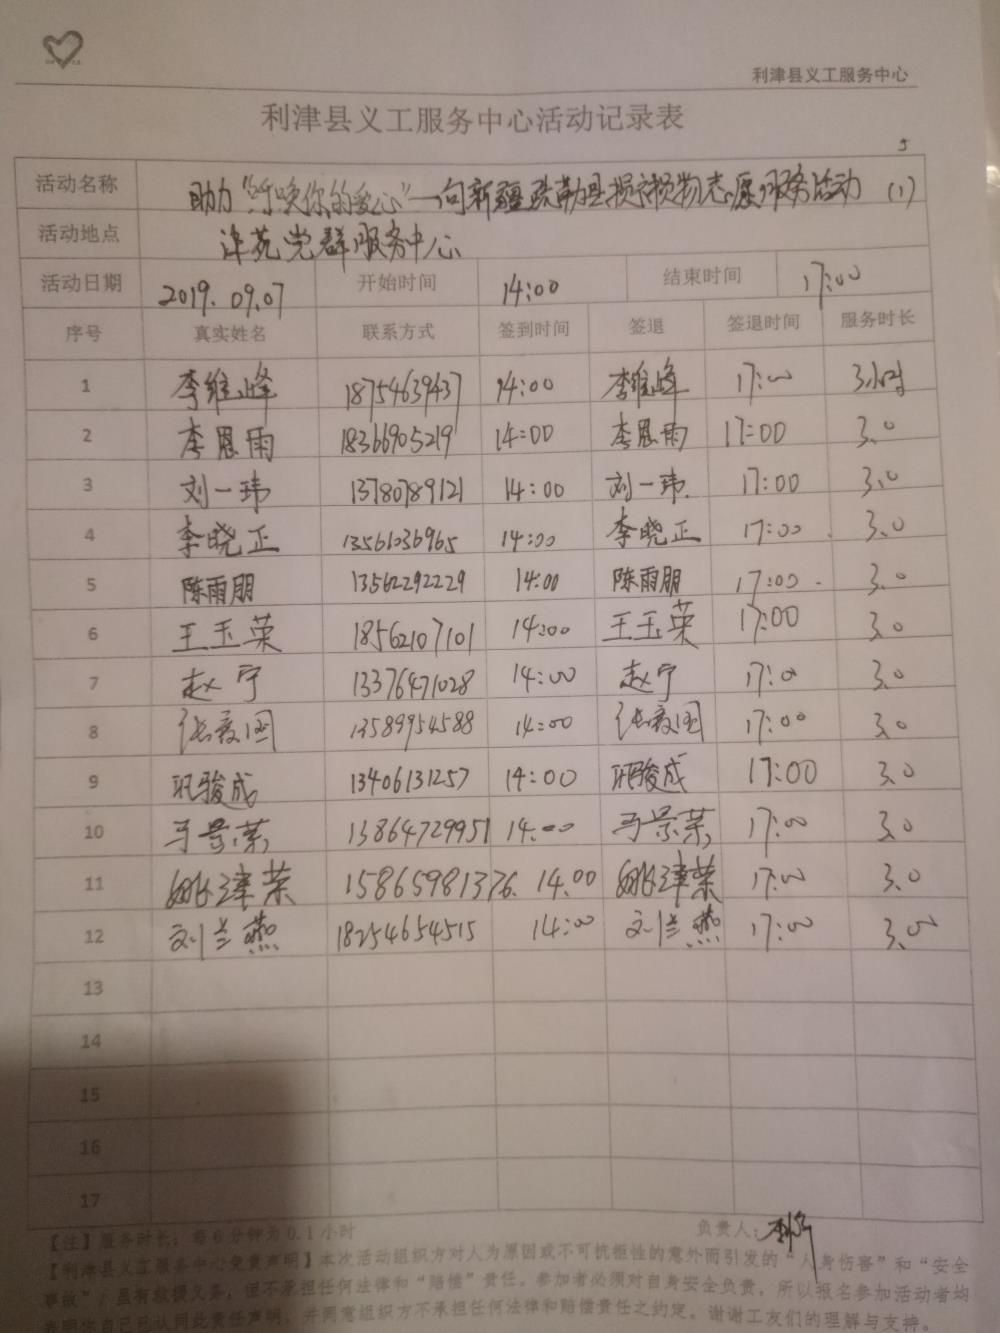 利津县义工服务中心
利津县义工服务中心活动记录表
5
活动名称 助力“呼唤你的爱心”一向新疆疏勒县捐衣捐物志愿服务活动 (1)
活动地点 津苑党群服务中心
活动日期 2019.09.07 开始时间 14:00 结束时间 17:00
序号 真实姓名 联系方式 签到时间 签退 签退时间 服务时长
1 李维峰 18754639437 14:00 李维峰 17:00 3小时
2 李恩雨 18366905219 14:00 李恩雨 17:00 3.0
3 刘一玮 13780789121 14:00 刘一玮 17:00 3.0
4 李晓正 13561036965 14:00 李晓正 17:00 3.0
5 陈雨朋 13562292229 14:00 陈雨朋 17:00 3.0
6 王玉荣 18562107101 14:00 王玉荣 17:00 3.0
7 赵宁 13376471028 14:00 赵宁 17:00 3.0
8 张爱国 13589954588 14:00 张爱国 17:00 3.0
9 骏成 13406131257 14:00 骏成 17:00 3.0
10 马景荣 13864729951 14:00 马景荣 17:00 3.0
11 姚泽荣 15865981376 14:00 姚泽荣 17:00 3.0
12 刘兰燕 18254654515 14:00 刘兰燕 17:00 3.0
13
14
15
16
17
【注】服务时长：每6分钟为0.1小时 负责人：
【利津县义工服务中心免责声明】本次活动组织方对人为原因或不可抗拒性的意外而引发的“人身伤害”和“安全
事故”，虽有救援义务，但不承担任何法律和“赔偿”责任。参加者必须对自身安全负责，所以报名参加活动者均
表明你自己已认同此责任声明，并同意组织方不承担任何法律和赔偿责任之约定。谢谢工友们的理解与支持。